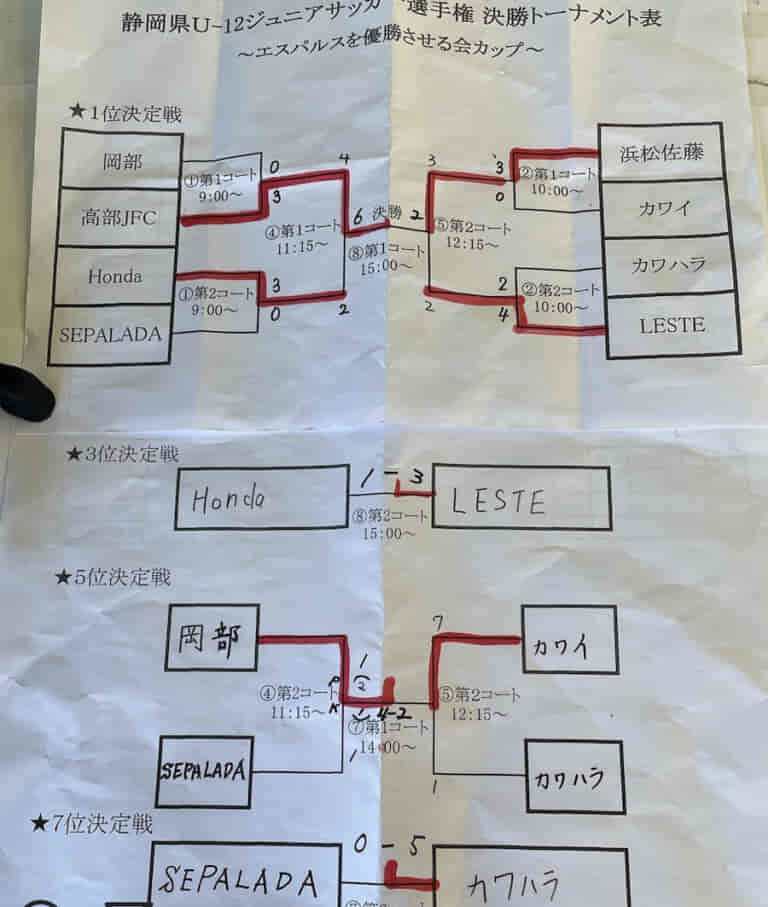 静岡県U-12ジュニアサッカ 選手権 決勝トーナメント表
～エスパルスを優勝させる会カップ～
★1位決定戦
岡部
高部JFC
Honda
SEPALADA
①第1コート
9:00～
0
3
①第2コート
9:00～
3
0
④第1コート
11:15～
4
2
6 決勝 2
⑧第1コート
15:00～
3
2
⑤第2コート
12:15～
3
0
②第1コート
10:00～
2
4
②第2コート
10:00～
浜松佐藤
カワイ
カワハラ
LESTE
★3位決定戦
Honda
1 - 3
LESTE
⑧第2コート
15:00～
★5位決定戦
岡部
SEPALADA
④第2コート
11:15～
1
PK
2
1
1
4-2
⑦第1コート
14:00～
7
1
⑤第2コート
12:15～
カワイ
カワハラ
★7位決定戦
SEPALADA
0 - 5
カワハラ